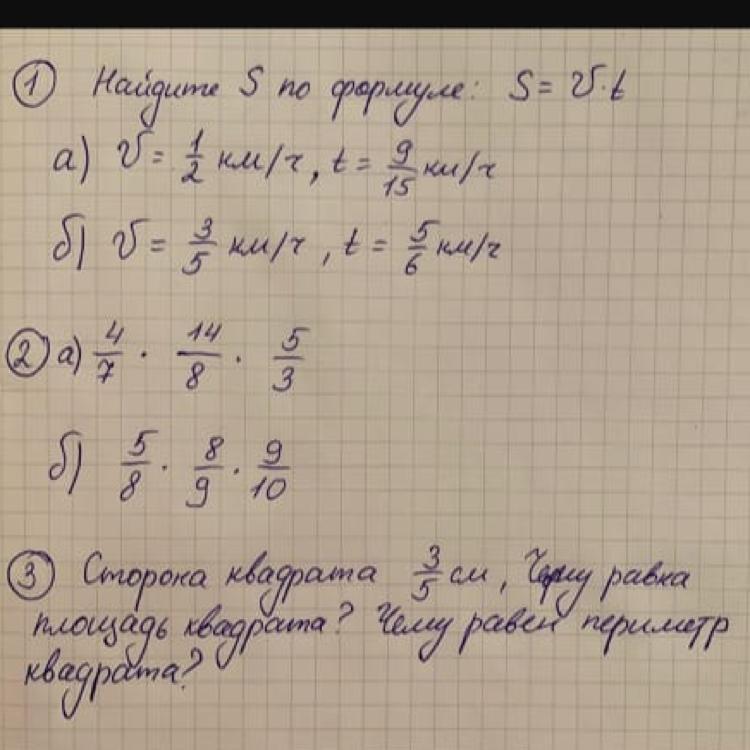 ① Найдите S по формуле: S = v·t
а) v = 1/2 км/ч, t = 9/15 км/ч
б) v = 3/5 км/ч, t = 5/6 км/ч
② а) 4/7 · 14/8 · 5/3
б) 5/8 · 8/9 · 9/10
③ Сторона квадрата 3/5 см, Чему равна
площадь квадрата? Чему равен периметр
квадрата?